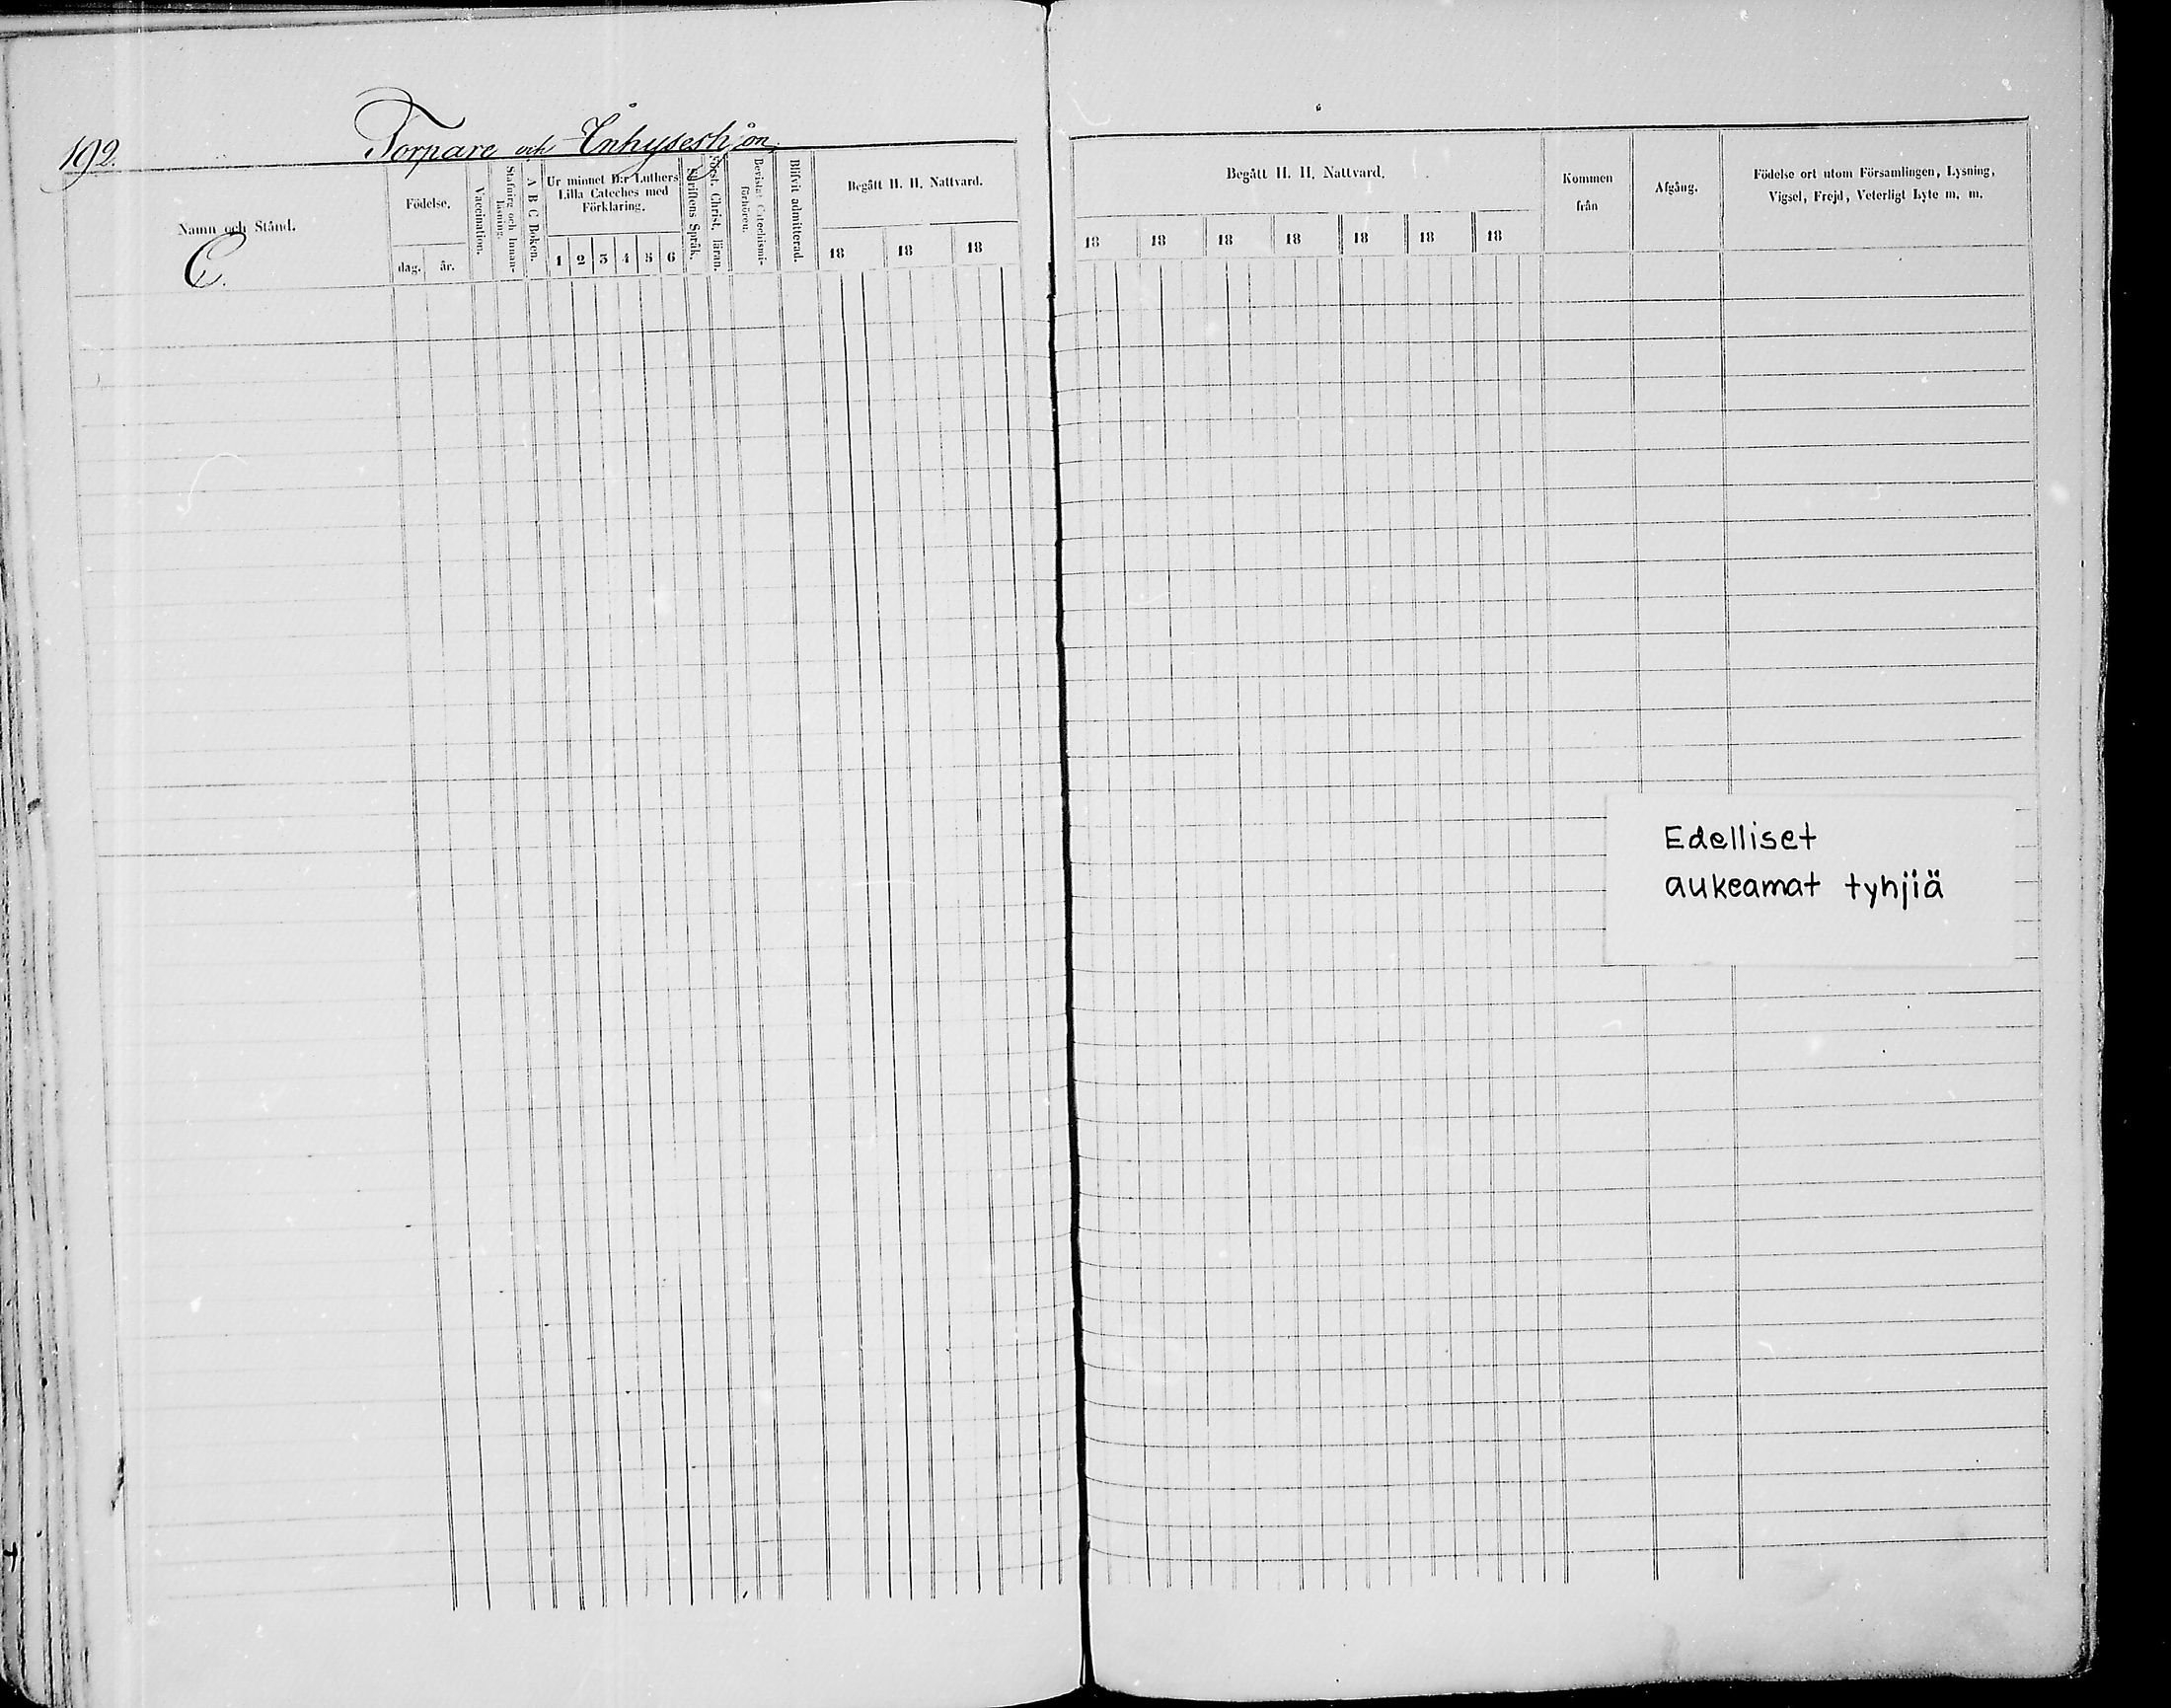 192.
Torpare och Inhyseshjon
Namn och Stånd.
C.
Födelse.
dag. år.
Vaccination.
Stafning och Innanläsning.
A B C Boken.
Ur minnet D:r Luthers
Lilla Cateches med
Förklaring.
1 2 3 4 5 6
Skriftens Språk.
Först. Christ. läran.
Bevistat Catechismiförhören.
Blifvit admitterad.
Begått H. H. Nattvard.
18 18 18
Begått H. H. Nattvard.
18 18 18 18 18 18 18
Kommen
från
Afgång.
Födelse ort utom Församlingen, Lysning,
Vigsel, Frejd, Veterligt Lyte m. m.
Edelliset
aukeamat tyhjiä